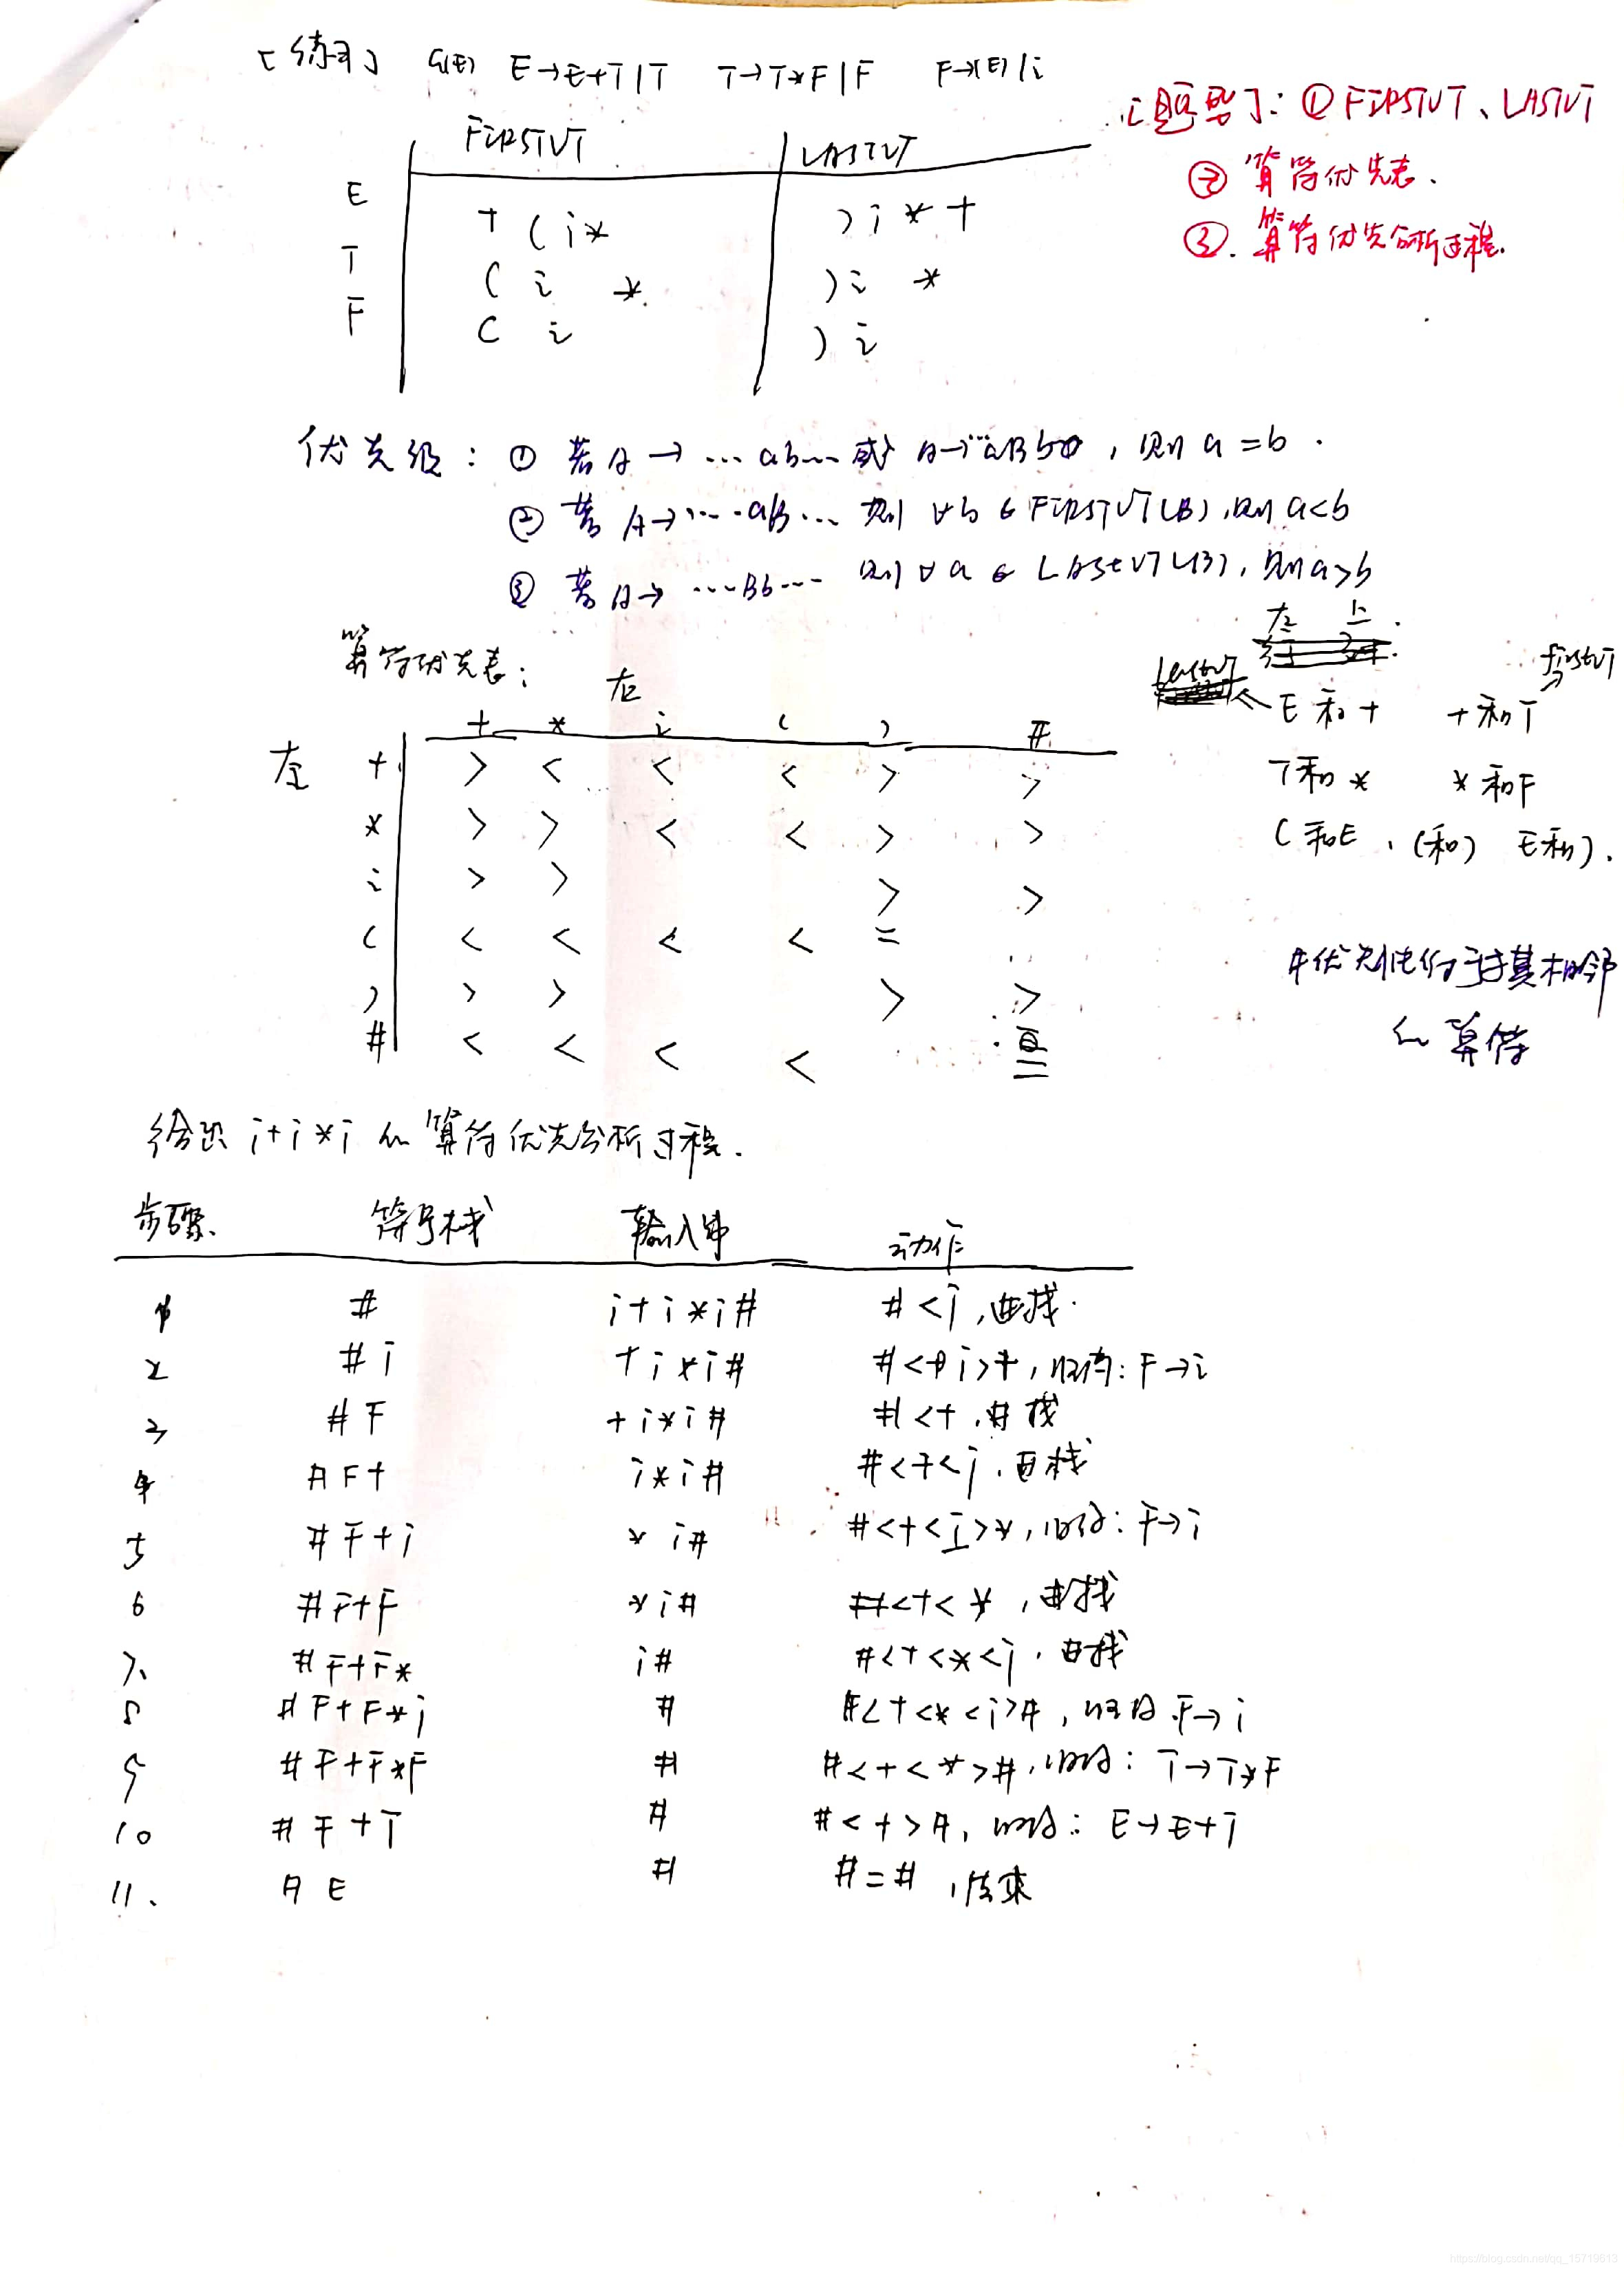 [练习] G(E) E→E+T|T T→T*F|F F→(E)|i
[题型]: ① FIRSTVT、LASTVT
② 算符优先表.
③. 算符优先分析过程.
FIRSTVT LASTVT
E + ( i * ) i * +
T ( i * ) i *
F ( i ) i
优先级: ① 若A → ...ab... 或 A→...aBb, 则 a=b.
② 若 A→...aB... 则 ∀b∈FIRSTVT(B), 则 a<b
③ 若A→ ...Bb... 则 ∀a∈LASTVT(B), 则 a>b
算符优先表: 右
左 上.
lastvT firstvT
← E和+ +和T
T和* *和F
(和E、(和) E和).
+ * i ( ) #
左 + > < < < > >
* > > < < > >
i > > > >
( < < < < =
) > > > >
# < < < < =
#优先性低于与其相邻
的算符
给出 i+i*i 的算符优先分析过程.
步骤. 符号栈 输入串 动作
1 # i+i*i# #<i,进栈.
2 #i +i*i# #<i>+, 归约: F→i
3 #F +i*i# #<+,进栈
4 #F+ i*i# #<+<i,进栈
5 #F+i *i# #<+<i>*,归约: F→i
6 #F+F *i# #<+<*,进栈
7. #F+F* i# #<+<*<i,进栈
8 #F+F*i # #<+<*<i>#,归约.F→i
9 #F+F*F # #<+<*>#,归约: T→T*F
10 #F+T # #<+>#,归约: E→E+T
11. #E # #=#,结束
https://blog.csdn.net/qq_15719613